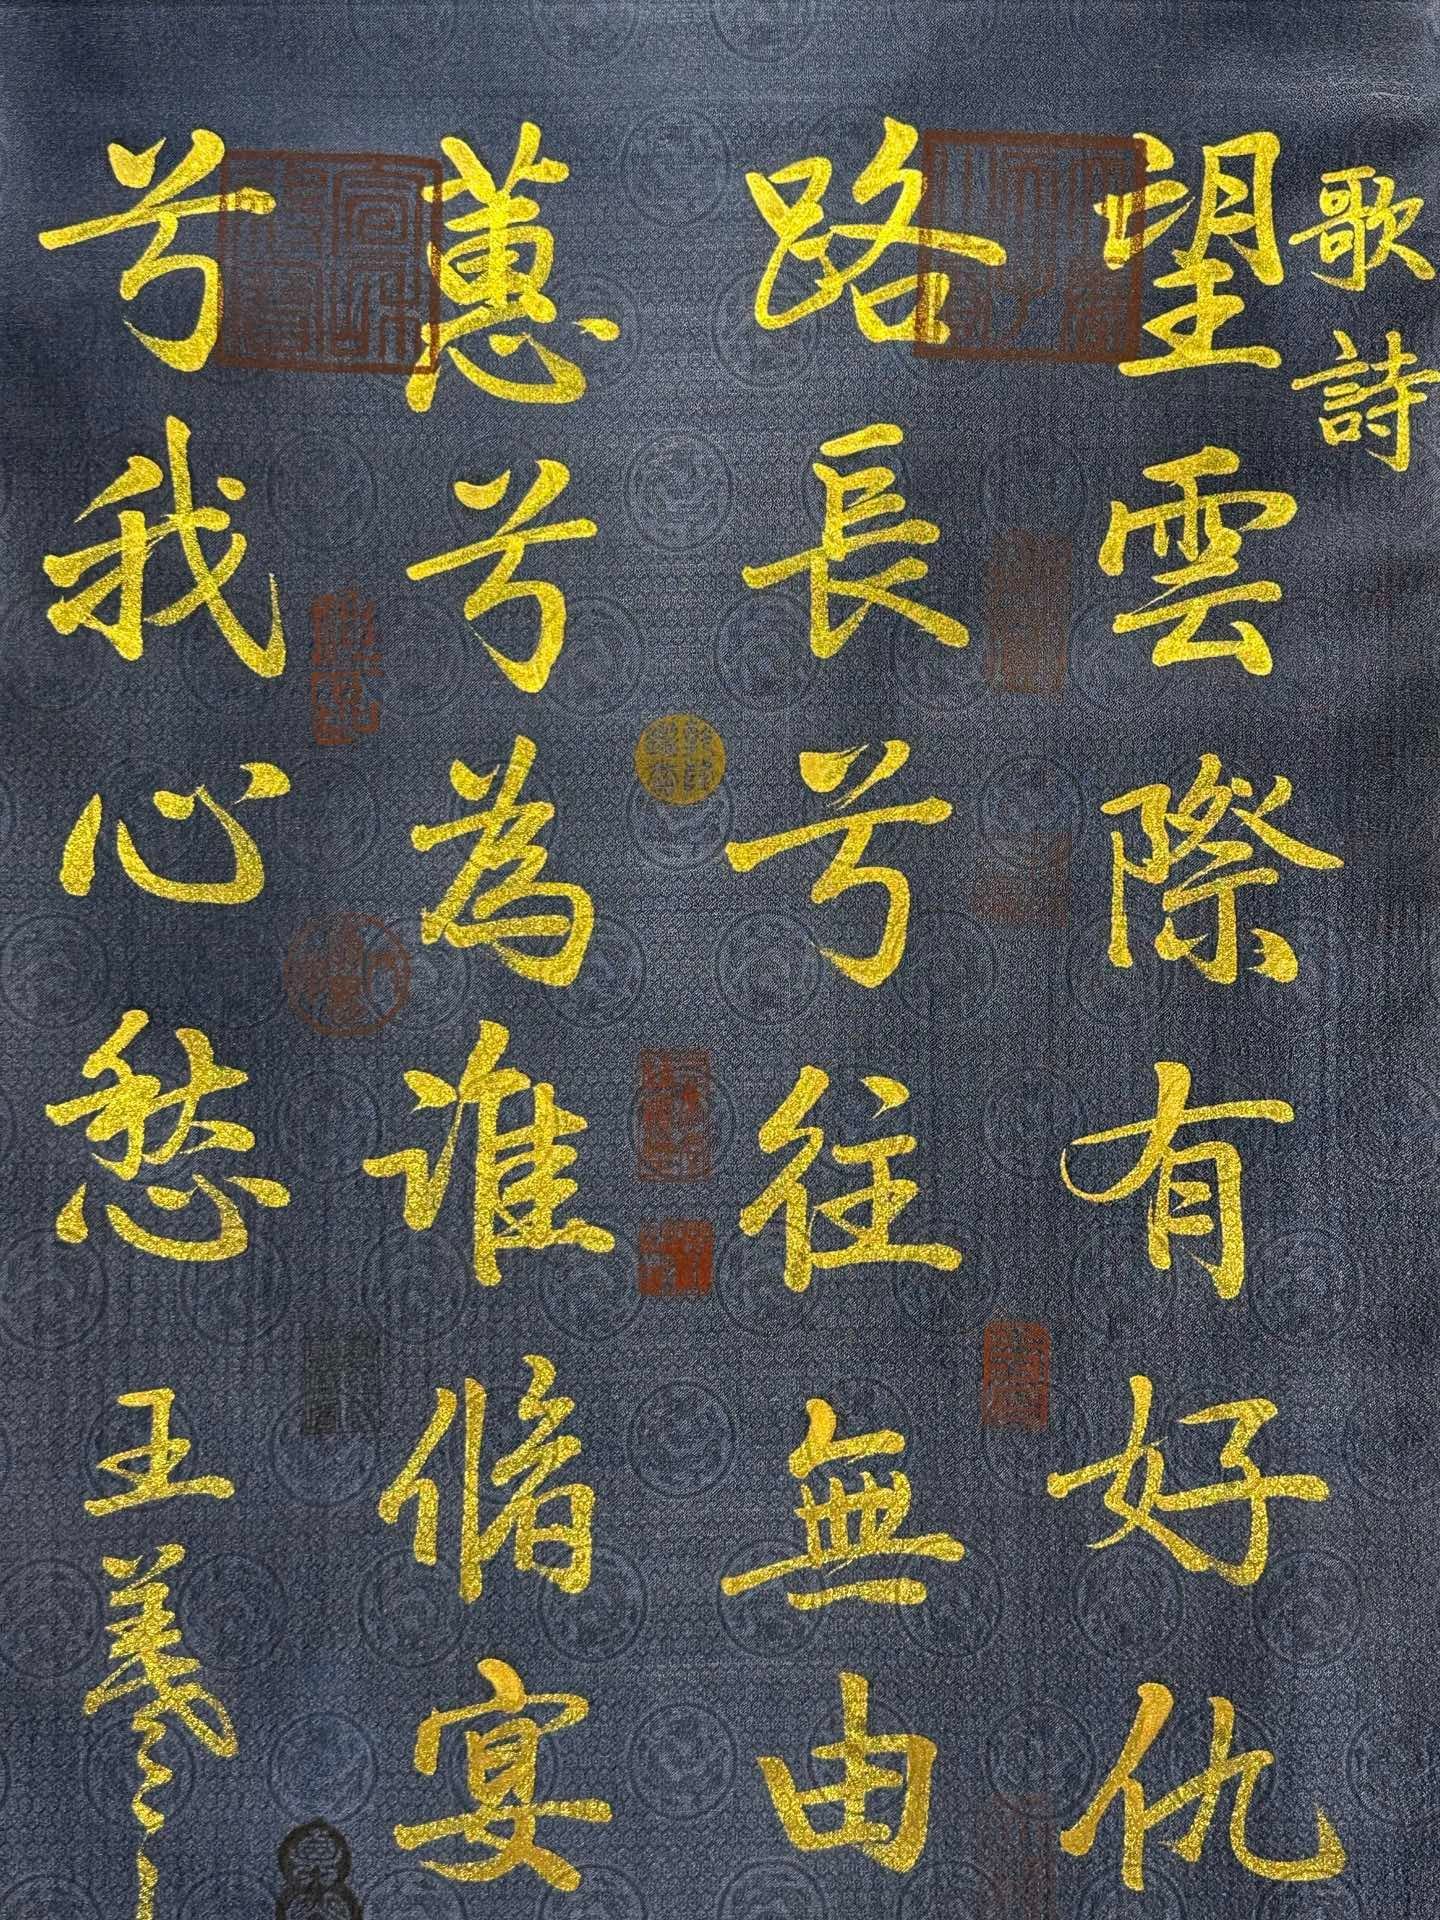 歌詩
望雲際有好仇
路長兮往無由
蕙兮為誰脩宴
兮我心愁
王羲之